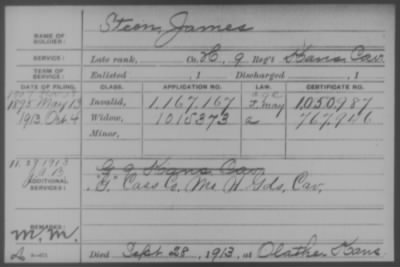 NAME OF SOLDIER: Steen, James
SERVICE: Late rank, Co. H, 9 Reg't Kans Cav
TERM OF SERVICE: Enlisted , 1 Discharged , 1
DATE OF FILING. CLASS. APPLICATION NO. LAW. CERTIFICATE NO.
1895 May 13 Invalid, 1,167,167 1,050,987
1913 Oct 4 Widow, 1015373 767,946
Minor,
ADDITIONAL SERVICES: G 9 Kans Cav.
"G" Cass Co. Mo H Gds, Cav.
REMARKS:
M.M.
Died Sept 28, 1913, at Olathe, Kans